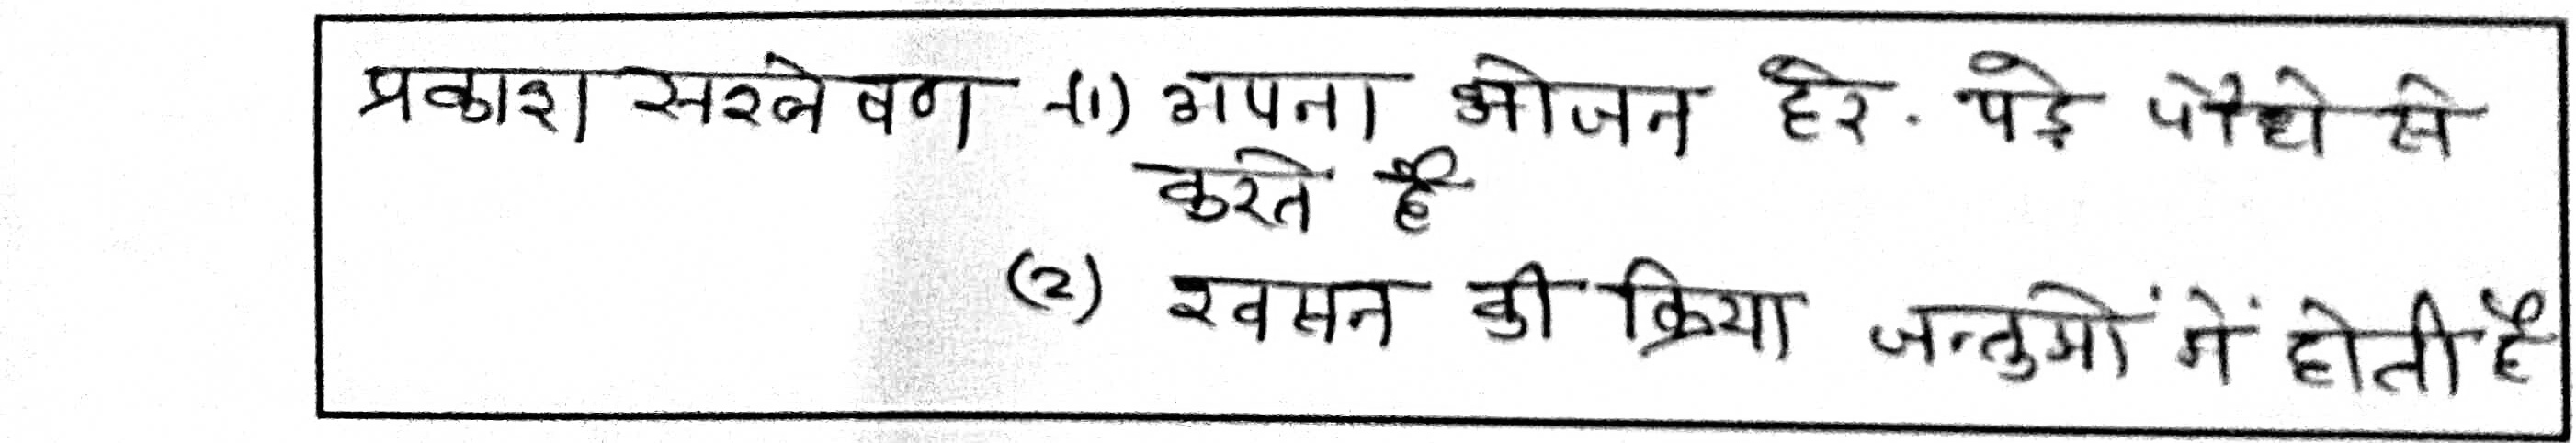 प्रकाश सश्लेषण -(1) अपना भोजन हरे. पेड़े पौधो से
करते हैं
(2) श्वसन की क्रिया जन्तुओं में होती है